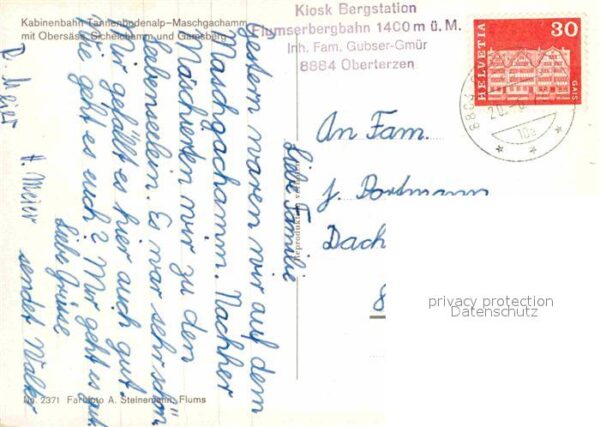 Kabinenbahn Tannenbodenalp–Maschgachamm
mit Obersäss, Sichelchamm und Gamsberg
Liebe Familie
Gestern waren wir auf dem
Maschgachamm. Nachher
Marschierten wir zu den
Seebenseelein. Es war sehr schön.
Mir gefällt es hier auch gut.
Wie geht es euch? Mir geht es gut.
Liebe Grüsse
sendet Walter
H. Meier
D. Meier
No. 2371 Farbfoto A. Steinemann, Flums
Reproduktion verboten
Kiosk Bergstation
Flumserbergbahn 1400 m ü. M.
Inh. Fam. Gubser-Gmür
8884 Oberterzen
HELVETIA
30
GAIS
10a
An Fam.
J. Dortmann
Dach
8
privacy protection
Datenschutz